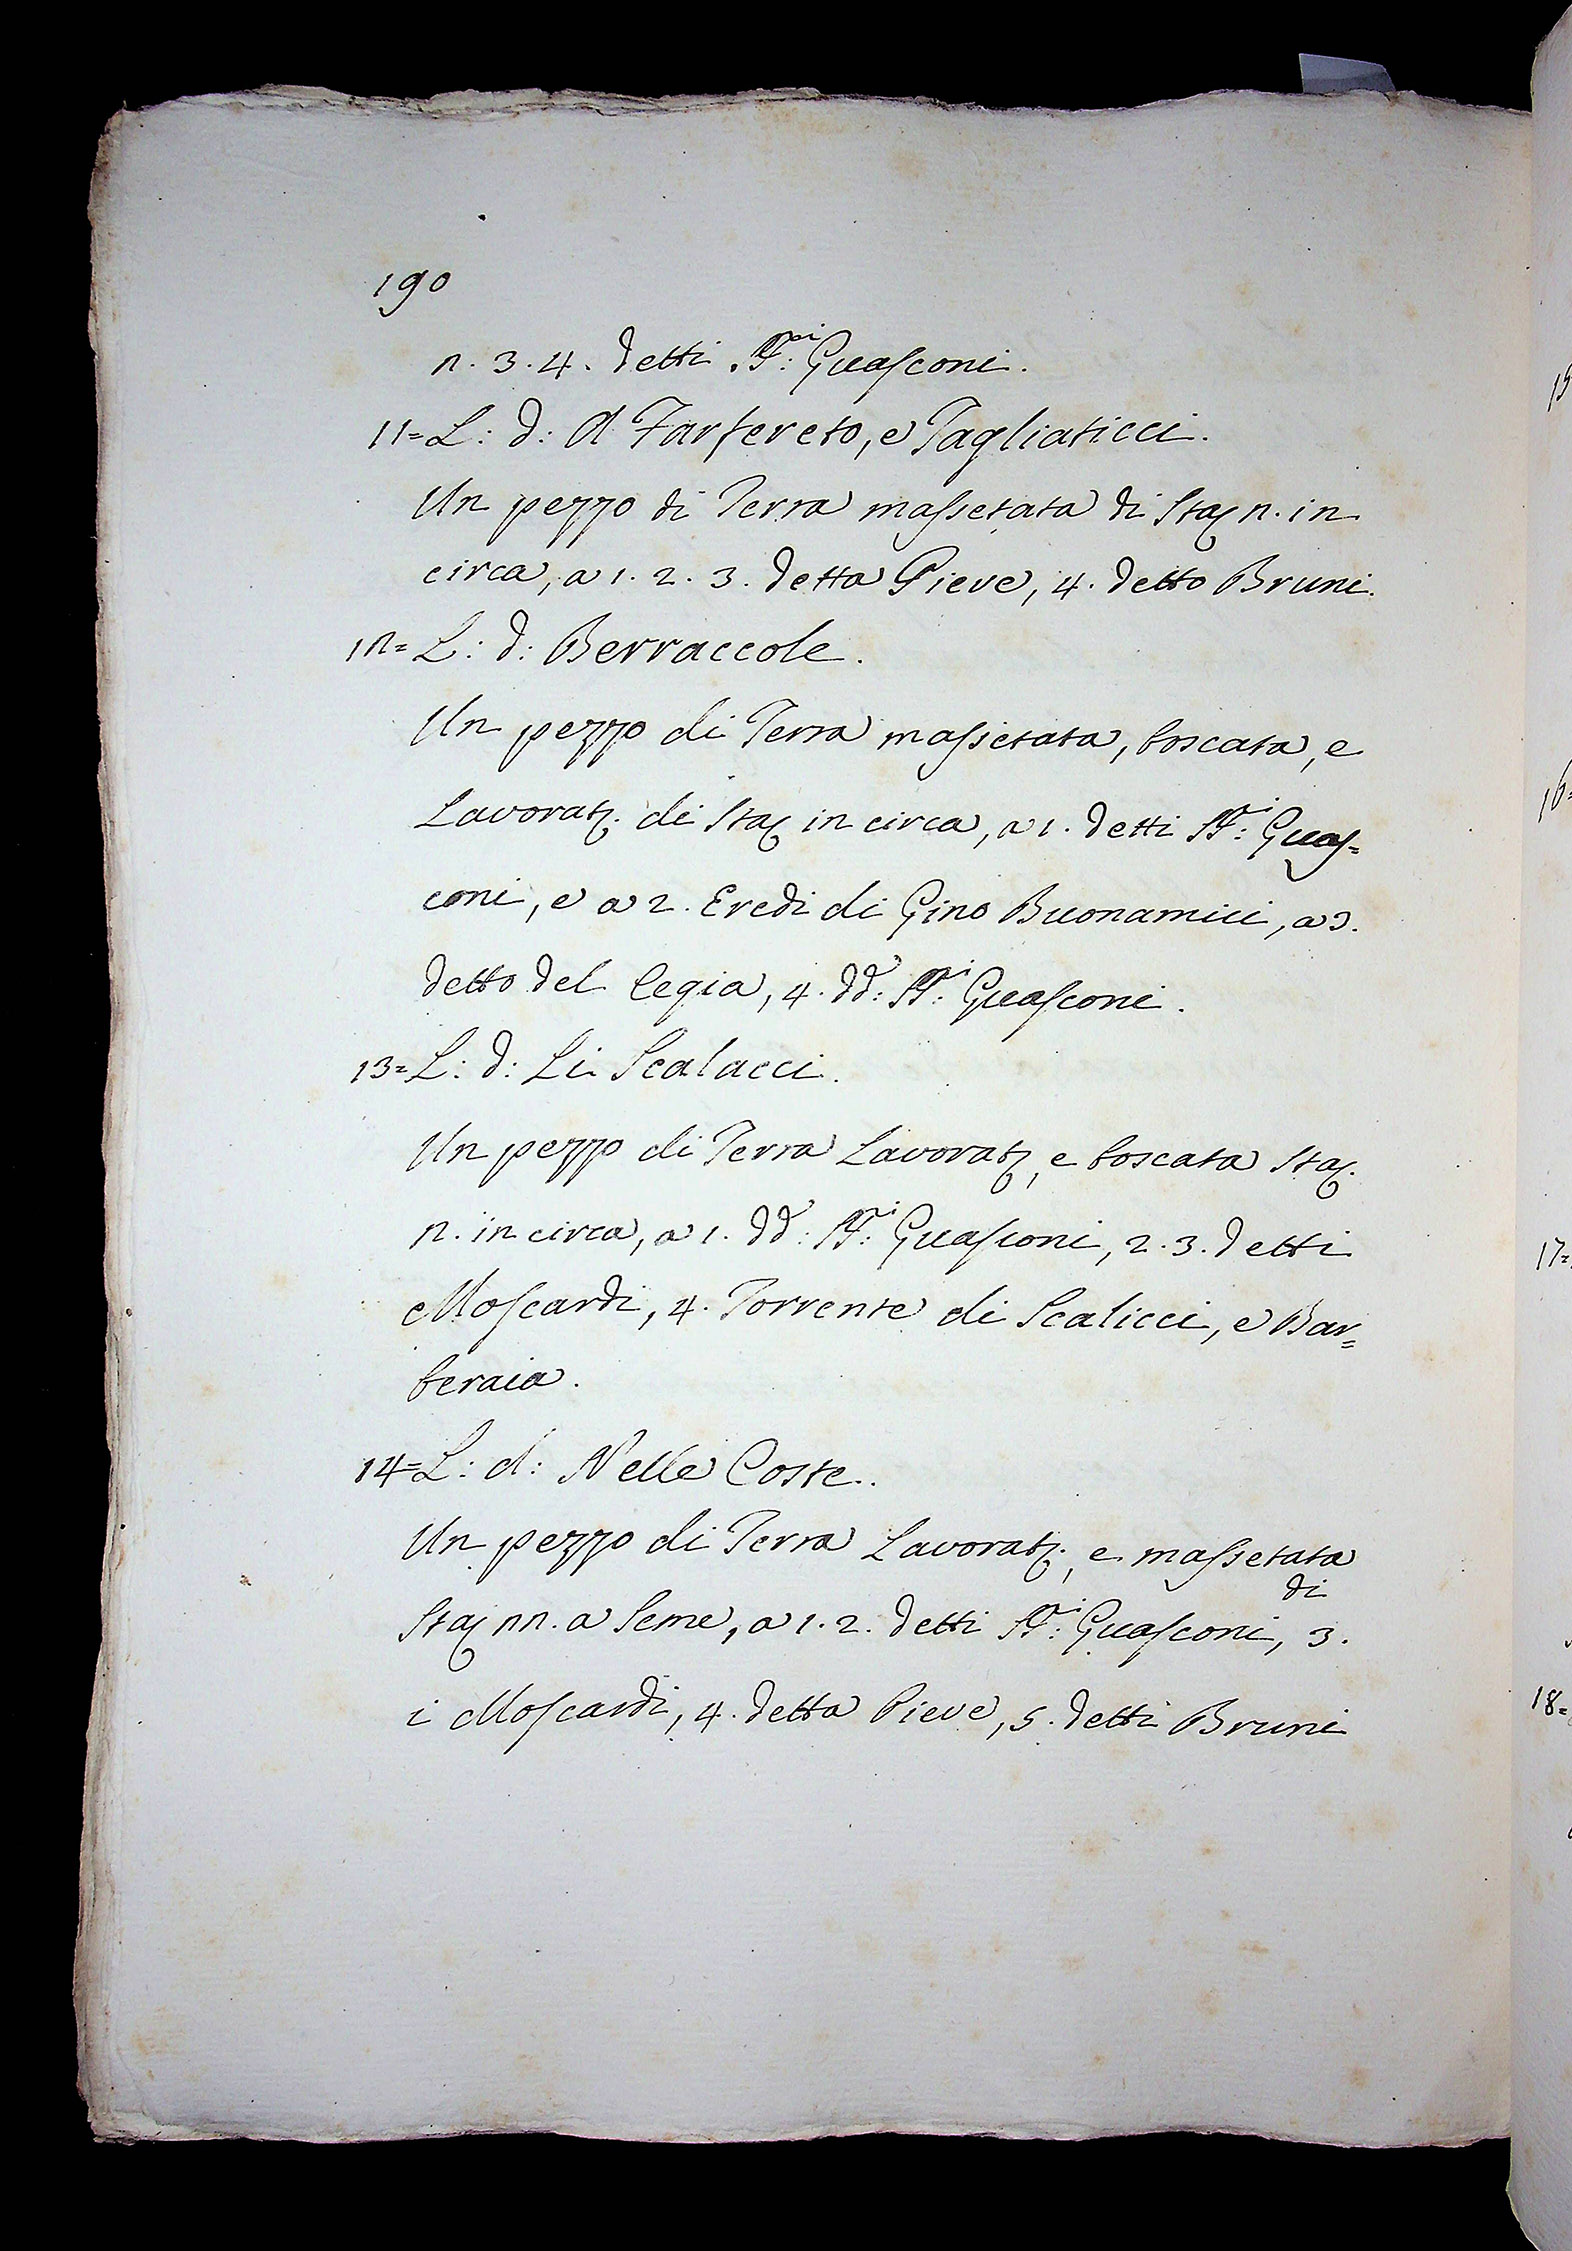 190
n. 3. 4. detti SS.ri Guasconi.
11= L: d: A Farfereto, e Tagliaticci.
Un pezzo di Terra massetata di Staj n. in
circa, a 1. 2. 3. detta Pieve, 4. detto Bruni.
1n= L: d: Berraccole.
Un pezzo di Terra massetata, boscata, e
Lavorat. di Staj in circa, a 1. detti SS.ri: Guas=
coni, e a 2. Eredi di Gino Buonamici, a 3.
detto del Cegia, 4. dd: SS.ri: Guasconi.
13= L: d: Li Scalacci.
Un pezzo di Terra Lavorat., e boscata Staj.
n. in circa, a 1. dd: SS.ri: Guasconi, 2. 3. detti
Moscardi, 4. Torrente di Scalicci, e Bar=
beraia.
14= L: d: Nelle Coste.
Un pezzo di Terra Lavorat., e massetata
di
Staj nn. a Seme, a 1. 2. detti SS.ri: Guasconi, 3.
i Moscardi, 4. detta Pieve, 5. detti Bruni
16=
17=
18=